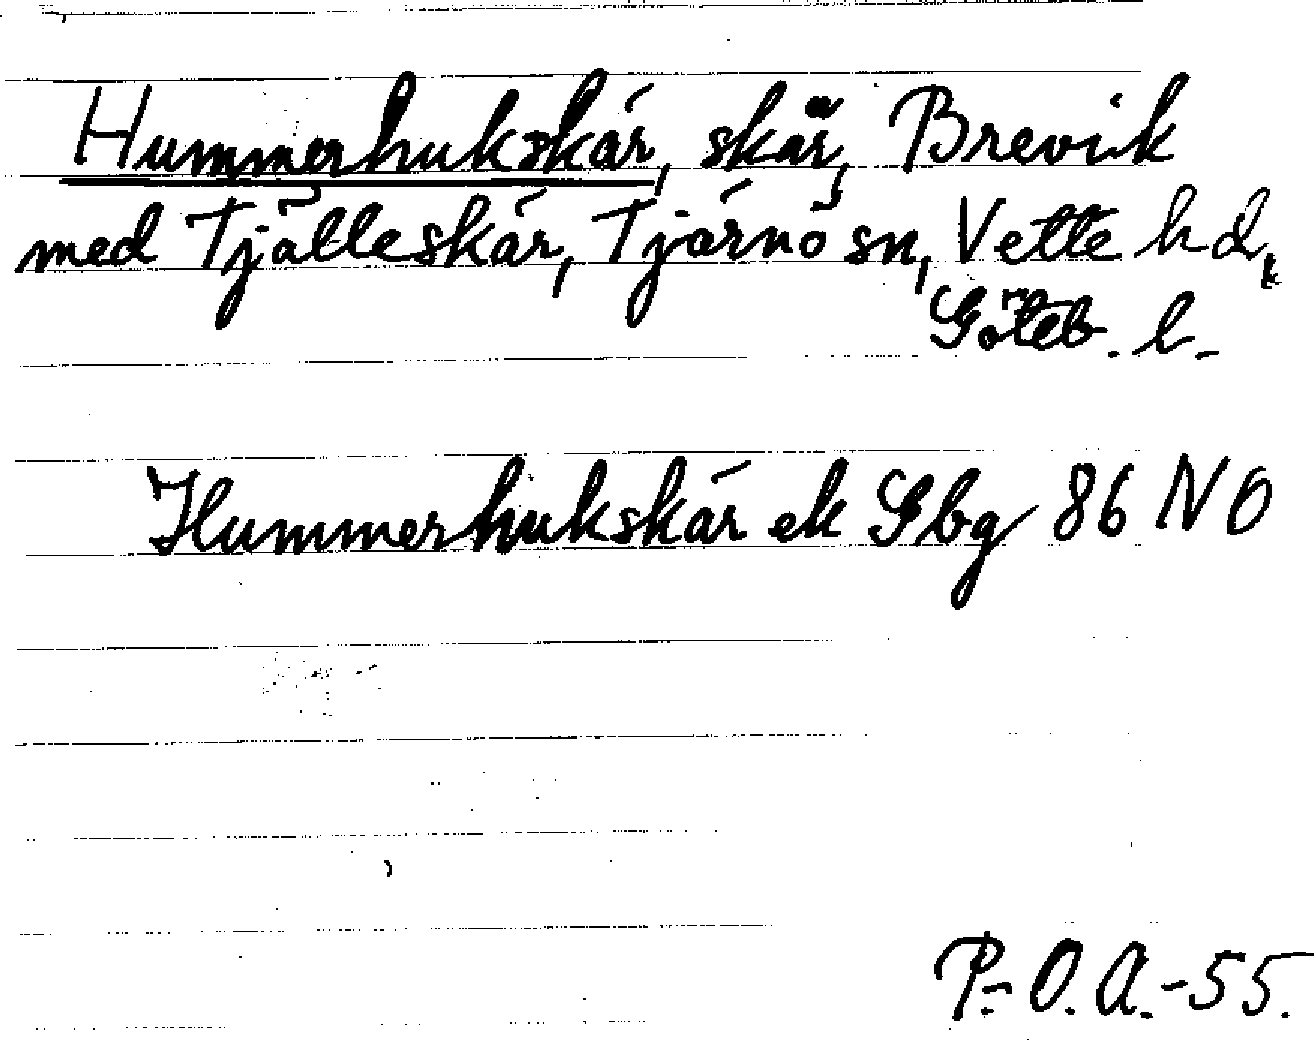 Hummerhukskär, skär, Brevik
med Tjälleskär, Tjärnö sn, Vette hd,
Göteb. l.
Hummerhukskär ek Gbg 86 NO
P.-O.A.-55.